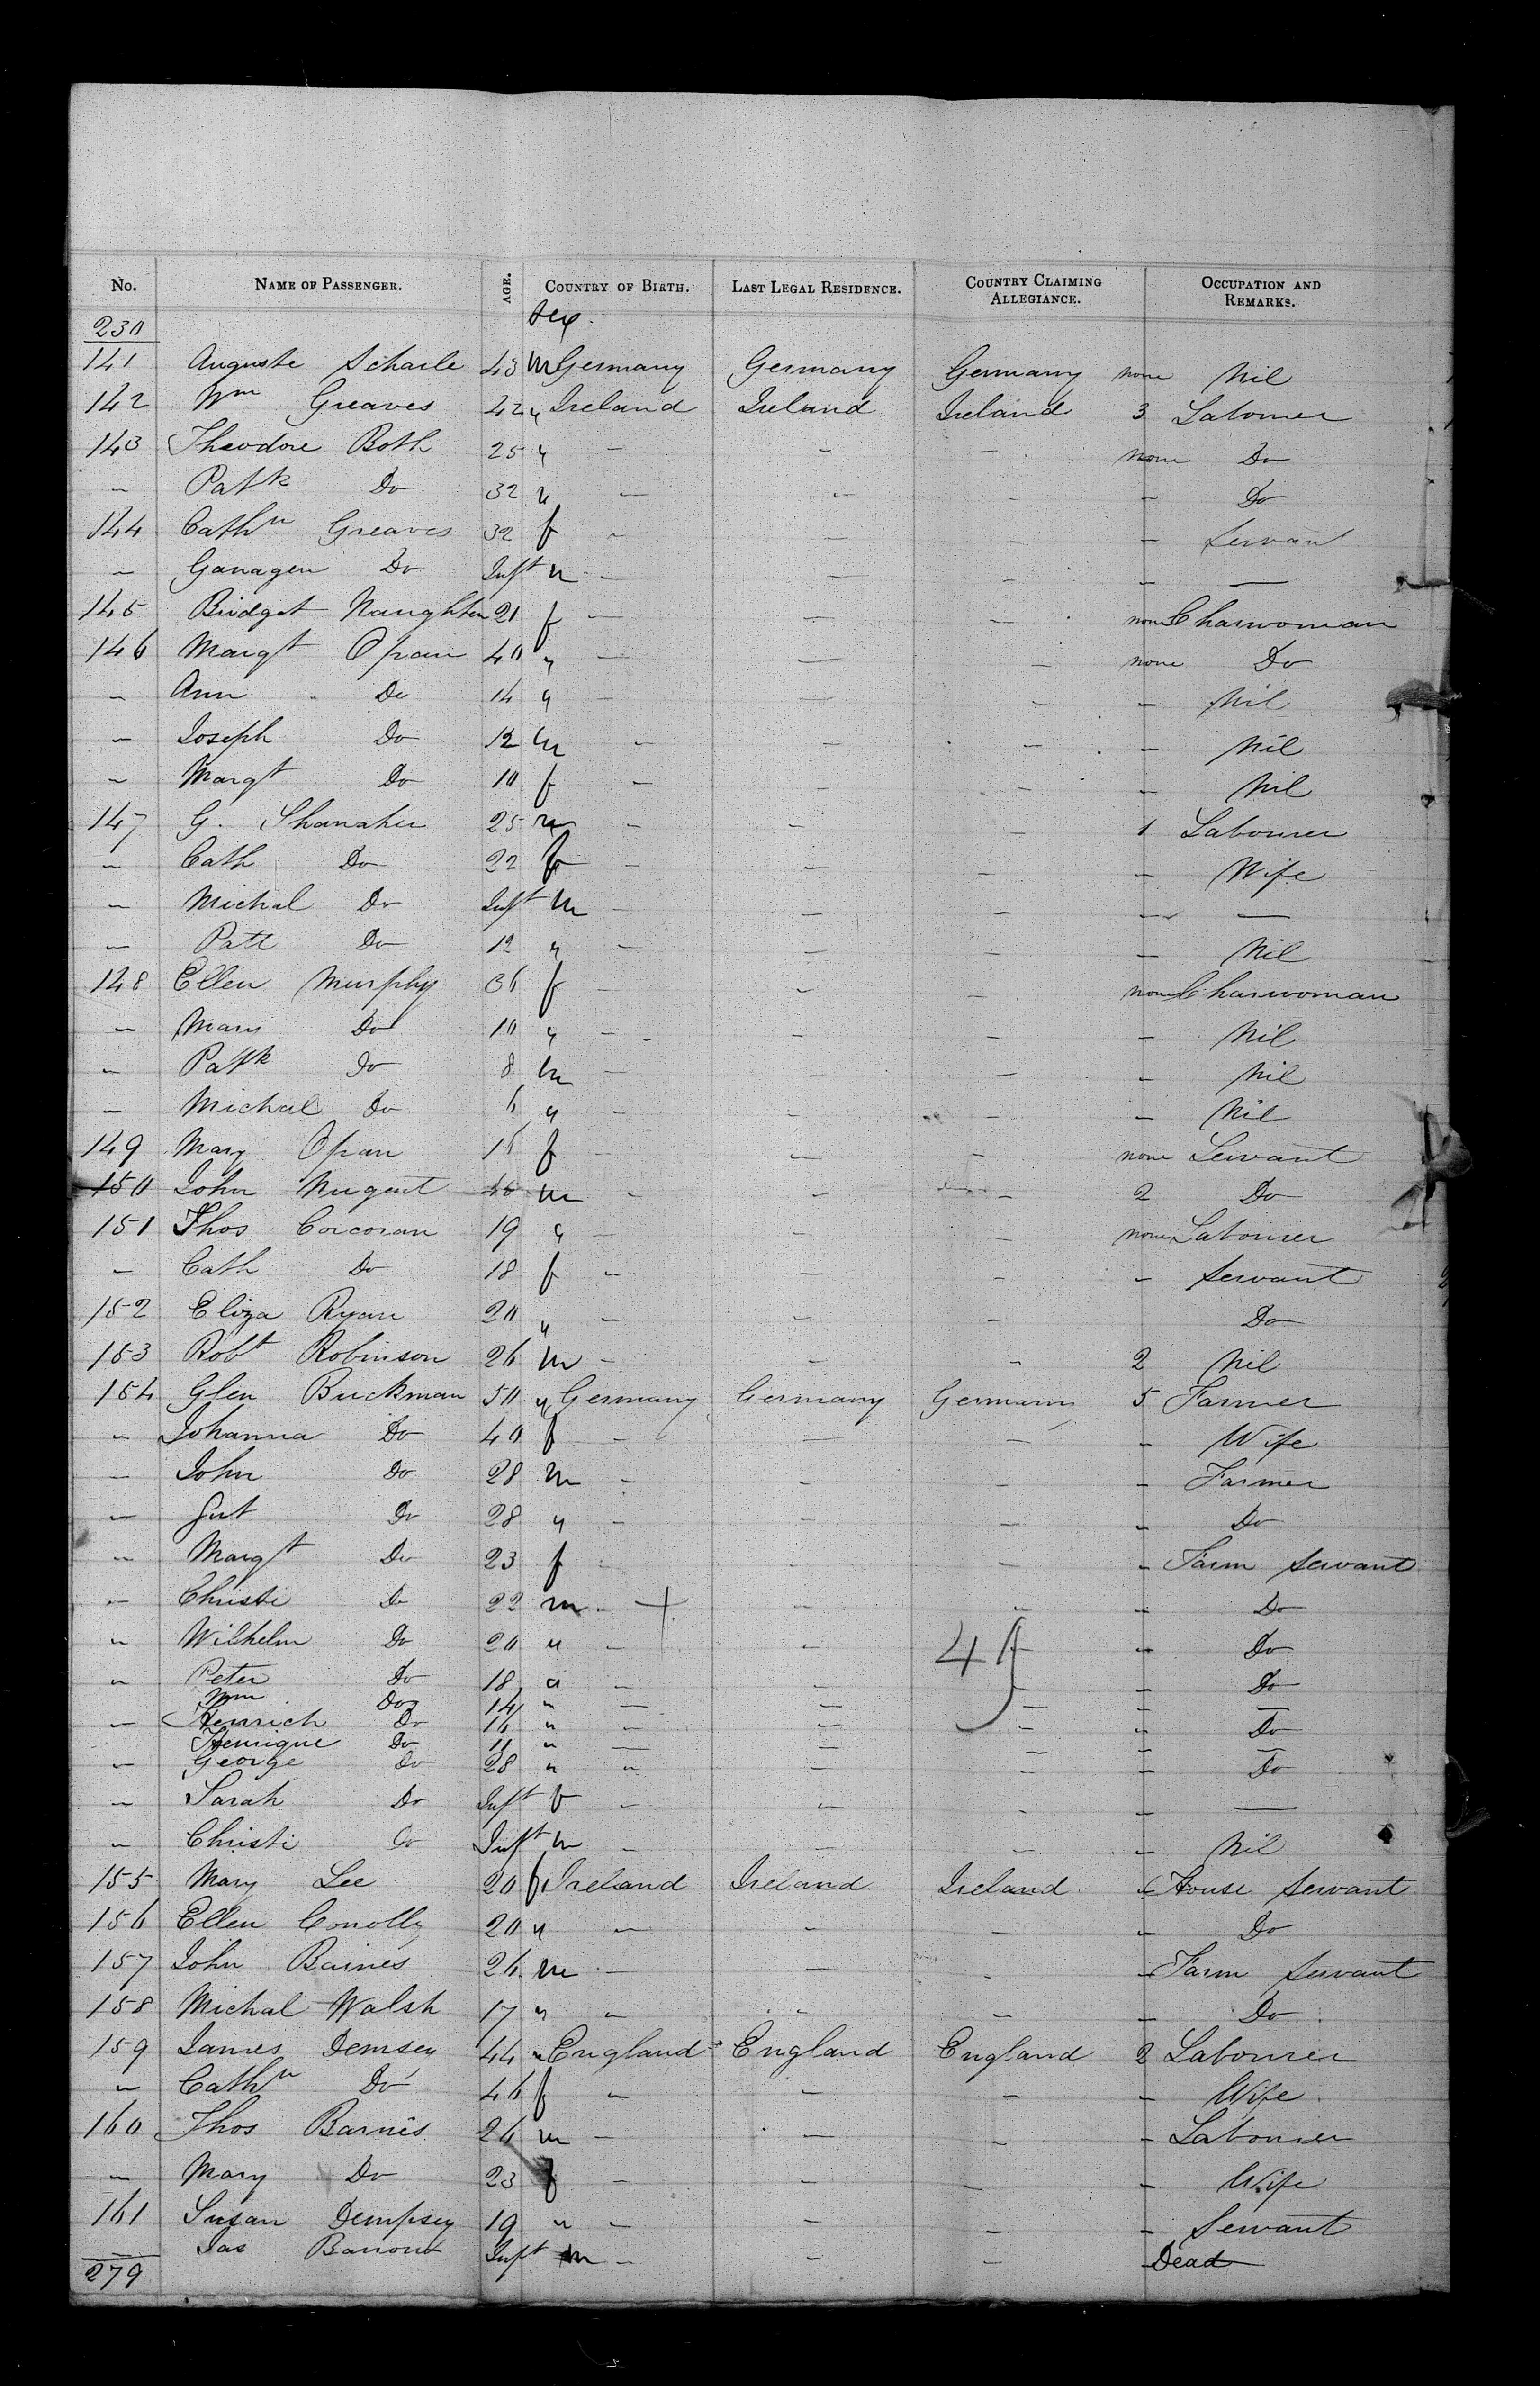 No. NAME OF PASSENGER. AGE. COUNTRY OF BIRTH. LAST LEGAL RESIDENCE. COUNTRY CLAIMING ALLEGIANCE. OCCUPATION AND REMARKS.
Sex.
230
141 Auguste Scharle 43 m Germany Germany Germany none Nil
142 Wm Greaves 42 " Ireland Ireland Ireland 3 Labourer
143 Theodore Both 25 " - - - none Do
- Patk Do 32 " - - - - Do
144 Cathn Greaves 32 f - - - - Servant
- Ganagen Do Inft m - - - - -
145 Bridget Naughten 21 f - - - none Charwoman
146 Margt Opan 40 " - - - none Do
- Ann Do 14 " - - - - Nil
- Joseph Do 12 m - - - - Nil
- Margt Do 10 f - - - - Nil
147 G. Shanaher 25 m - - - 1 Labourer
- Cath Do 22 f - - - - Wife
- Michal Do Inft m - - - - -
- Patt Do 12 " - - - - Nil
148 Ellen Murphy 36 f - - - none Charwoman
- Mary Do 10 " - - - - Nil
- Patk Do 8 m - - - - Nil
- Michal Do 6 " - - - - Nil
149 Mary Opan 16 f - - - none Servant
150 John Nugent 40 m - - - 2 Do
151 Thos Corcoran 19 " - - - none Labourer
- Cath Do 18 f - - - - Servant
152 Eliza Ryan 20 " - - - Do
153 Robt Robinson 26 m - - - 2 Nil
154 Glen Buckman 50 " Germany Germany Germany 5 Farmer
- Johanna Do 40 f - - - - Wife
- John Do 28 m - - - - Farmer
- Do 28 " - - - - Do
- Margt Do 23 f - - - - Farm Servant
- Christi Do 22 m - + - - - Do
- Wilhelm Do 20 " - - 49 - - Do
- Peter Do 18 " - - - - Do
Wm Do 14 " - - - - -
- Henrich Do 16 " - - - - Do
Henrique Do 11 " - - - - -
- George Do 28 " - - - - Do
- Sarah Do Inft f - - - - -
- Christi Do Inft m - - - - Nil
155 Mary Lee 20 f Ireland Ireland Ireland House Servant
156 Ellen Conolly 20 " - - - - Do
157 John Baines 26 m - - - - Farm Servant
158 Michal Walsh 17 " - - - - Do
159 James Demsey 44 " England England England 2 Labourer
- Cathn Do 46 f - - - - Wife
160 Thos Barnes 26 m - - - - Labourer
- Mary Do 23 f - - - - Wife
161 Susan Dempsey 19 " - - - - Servant
- Jas Inft m - - - Dead
279